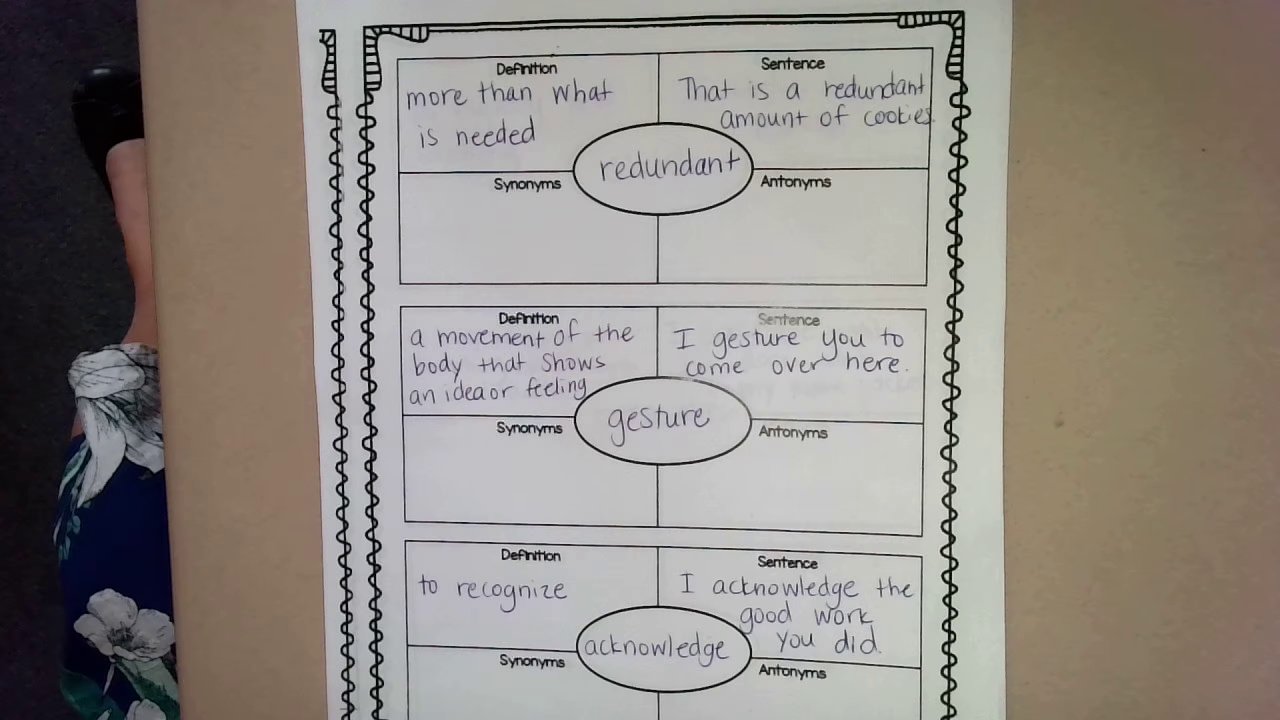 Definition
more than what
is needed
Sentence
That is a redundant
amount of cookies
redundant
Synonyms
Antonyms
Definition
a movement of the
body that shows
an idea or feeling
Sentence
I gesture you to
come over here.
gesture
Synonyms
Antonyms
Definition
to recognize
Sentence
I acknowledge the
good work
you did.
acknowledge
Synonyms
Antonyms